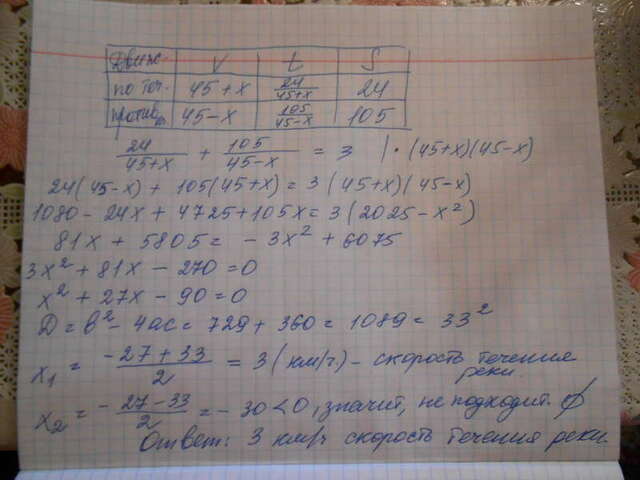 Движ. V t S
по теч. 45+x 24/45+x 24
против 45-x 105/45-x 105
24/45+x + 105/45-x = 3 | · (45+x)(45-x)
24(45-x) + 105(45+x) = 3(45+x)(45-x)
1080 - 24x + 4725 + 105x = 3(2025 - x²)
81x + 5805 = -3x² + 6075
3x² + 81x - 270 = 0
x² + 27x - 90 = 0
D = b² - 4ac = 729 + 360 = 1089 = 33²
x₁ = -27+33/2 = 3 (км/ч) - скорость течения
реки.
x₂ = -27-33/2 = -30 < 0, значит, не подходит. ∅
Ответ: 3 км/ч скорость течения реки.